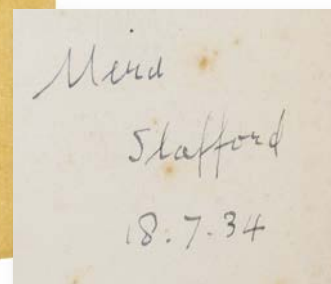 Meira
Stafford
18.7.34